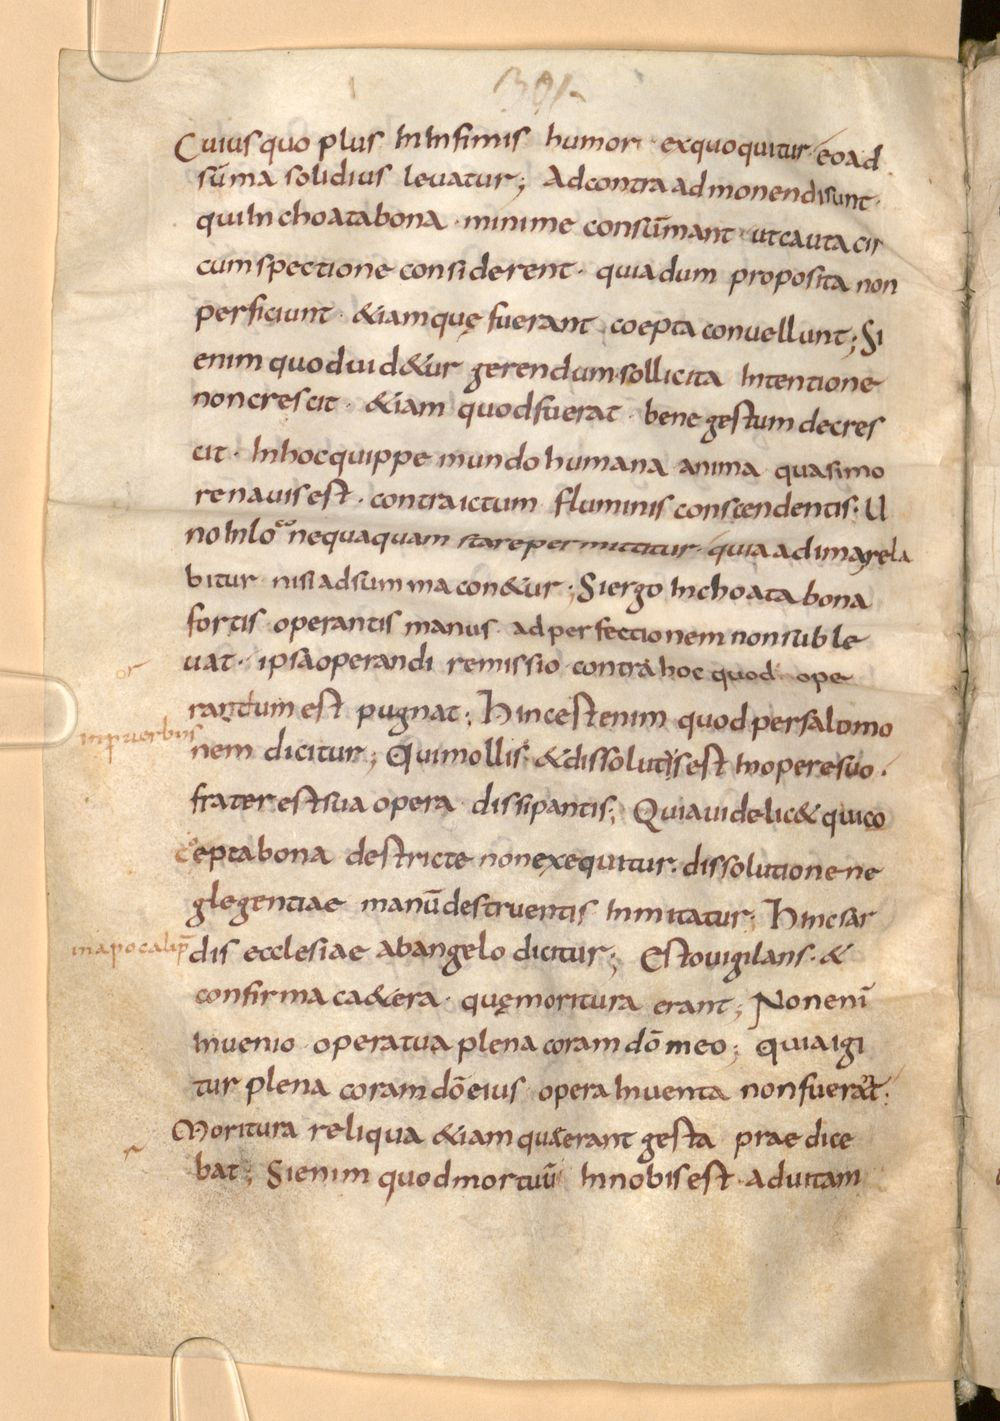 Cuius quo plus in infimis humor · exquoquitur · eo ad
sūma solidius leuatur; Ad contra admonendi sunt ·
qui inchoata bona · minime consūmant · ut cauta cir
cumspectione considerent · quia dum proposita non
perficiunt · &iam quę fuerant coepta conuellunt; Si
enim quod uid&ur gerendum · sollicita intentione
non crescit · &iam quod fuerat · bene gestum decres
cit · In hoc quippe mundo humana anima quasi mo
re nauis est · contra ictum fluminis conscendentis · U
no in loco nequaquam stare permittitur · quia ad ima rela
bitur nisi ad summa con&ur; Si ergo inchoata bona
fortis operantis manus ad perfectionem non suble
uat · ipsa operandi remissio contra hoc quod ope
ratum est pugnat; Hinc est enim quod per salomo
in prouerbiis
nem dicitur; Qui mollis · &dissolutus est in opere suo ·
frater est sua opera dissipantis; Quia uidelic& qui co
epta bona destricte non exequitur · dissolutione ne
glegentiae manū destruentis inmitatur; Hinc sar
in apocalip̄
dis ecclesiae ab angelo dicitur; Esto uigilans · &
confirma ca&era · quę moritura erant; Non enī
inuenio opera tua plena coram dō meo; quia igi
tur plena coram dō eius opera inuenta non fuerant;
Moritura reliqua &iam quae erant gesta praedice
bat; Si enim quod mortuū in nobis est · ad uitam